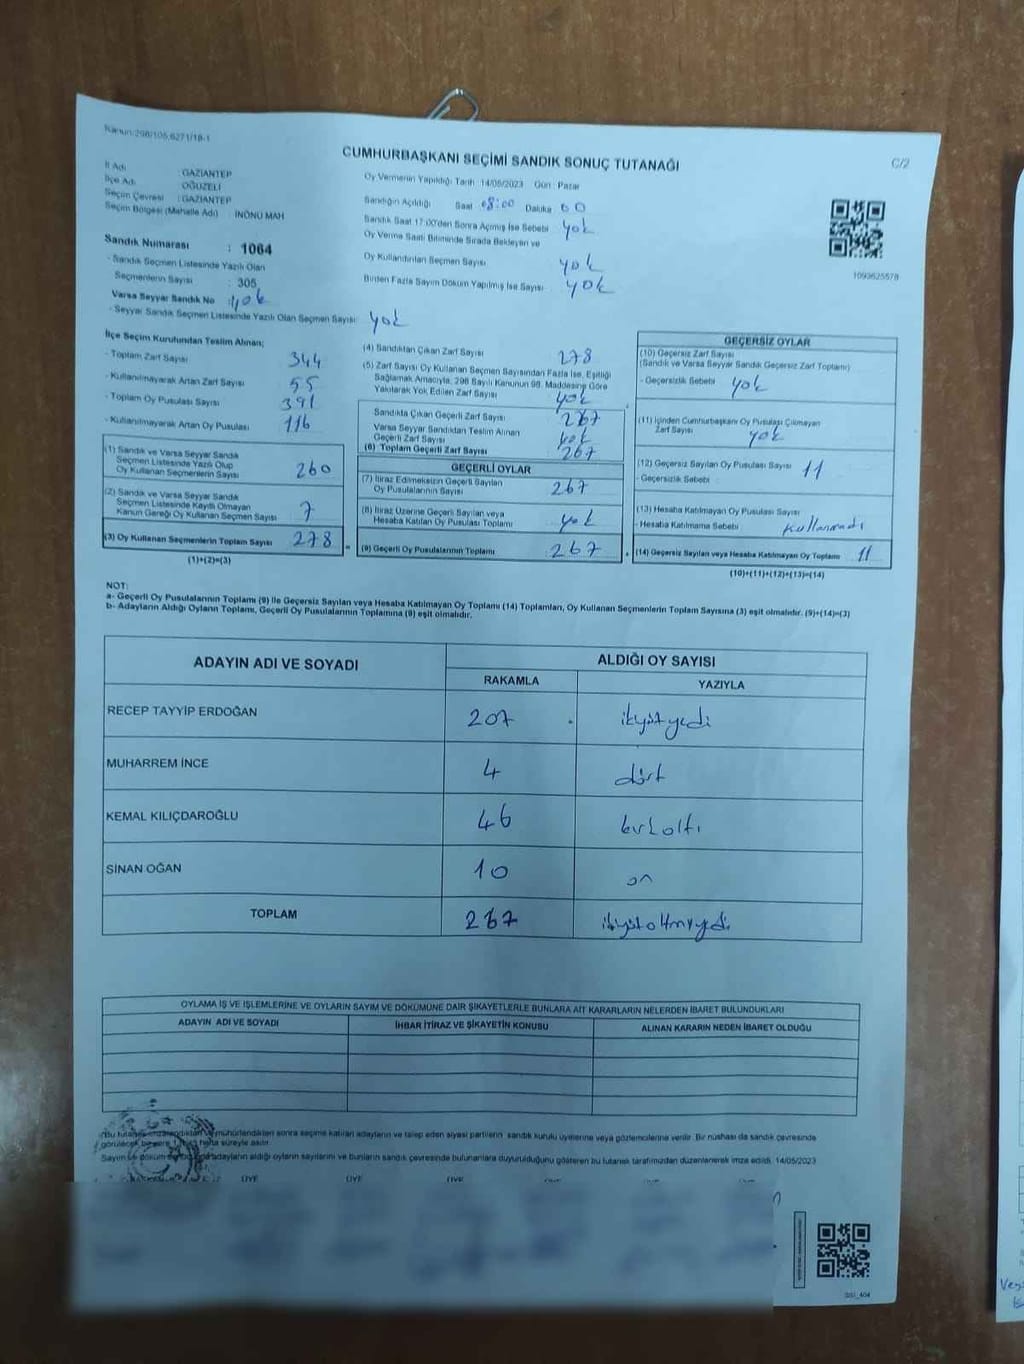 Kanun:298/105,6271/18-1
C/2
CUMHURBAŞKANI SEÇİMİ SANDIK SONUÇ TUTANAĞI
İl Adı : GAZİANTEP
İlçe Adı : OĞUZELİ
Seçim Çevresi : GAZİANTEP
Seçim Bölgesi (Mahalle Adı) : İNÖNÜ MAH
Sandık Numarası : 1064
- Sandık Seçmen Listesinde Yazılı Olan
Seçmenlerin Sayısı : 305
Varsa Seyyar Sandık No : yok
- Seyyar Sandık Seçmen Listesinde Yazılı Olan Seçmen Sayısı: yok
Oy Vermenin Yapıldığı Tarih 14/05/2023 Gün : Pazar
Sandığın Açıldığı Saat 08:00 Dakika 00
Sandık Saat 17:00'den Sonra Açılmış İse Sebebi yok
Oy Verme Saati Bitiminde Sırada Bekleyen ve
Oy Kullandırılan Seçmen Sayısı yok
Birden Fazla Sayım Döküm Yapılmış İse Sayısı yok
1093625578
İlçe Seçim Kurulundan Teslim Alınan;
- Toplam Zarf Sayısı 344
- Kullanılmayarak Artan Zarf Sayısı 55
- Toplam Oy Pusulası Sayısı 391
- Kullanılmayarak Artan Oy Pusulası 116
(1) Sandık ve Varsa Seyyar Sandık
Seçmen Listesinde Yazılı Olup
Oy Kullanan Seçmenlerin Sayısı 260
(2) Sandık ve Varsa Seyyar Sandık
Seçmen Listesinde Kayıtlı Olmayan
Kanun Gereği Oy Kullanan Seçmen Sayısı 7
(3) Oy Kullanan Seçmenlerin Toplam Sayısı 278
(1)+(2)=(3)
(4) Sandıktan Çıkan Zarf Sayısı 278
(5) Zarf Sayısı Oy Kullanan Seçmen Sayısından Fazla İse, Eşitliği
Sağlamak Amacıyla, 298 Sayılı Kanunun 98. Maddesine Göre
Yakılarak Yok Edilen Zarf Sayısı yok
Sandıkta Çıkan Geçerli Zarf Sayısı 267
Varsa Seyyar Sandıktan Teslim Alınan
Geçerli Zarf Sayısı yok
(6) Toplam Geçerli Zarf Sayısı 267
GEÇERLİ OYLAR
(7) İtiraz Edilmeksizin Geçerli Sayılan
Oy Pusulalarının Sayısı 267
(8) İtiraz Üzerine Geçerli Sayılan veya
Hesaba Katılan Oy Pusulası Toplamı yok
(9) Geçerli Oy Pusulalarının Toplamı 267
GEÇERSİZ OYLAR
(10) Geçersiz Zarf Sayısı
(Sandık ve Varsa Seyyar Sandık Geçersiz Zarf Toplamı)
- Geçersizlik Sebebi yok
(11) İçinden Cumhurbaşkanı Oy Pusulası Çıkmayan
Zarf Sayısı yok
(12) Geçersiz Sayılan Oy Pusulası Sayısı 11
- Geçersizlik Sebebi
(13) Hesaba Katılmayan Oy Pusulası Sayısı
- Hesaba Katılmama Sebebi kullanmadı
(14) Geçersiz Sayılan veya Hesaba Katılmayan Oy Toplamı 11
(10)+(11)+(12)+(13)=(14)
NOT:
a- Geçerli Oy Pusulalarının Toplamı (9) ile Geçersiz Sayılan veya Hesaba Katılmayan Oy Toplamı (14) Toplamları, Oy Kullanan Seçmenlerin Toplam Sayısına (3) eşit olmalıdır. (9)+(14)=(3)
b- Adayların Aldığı Oyların Toplamı, Geçerli Oy Pusulalarının Toplamına (9) eşit olmalıdır.
ADAYIN ADI VE SOYADI ALDIĞI OY SAYISI
RAKAMLA YAZIYLA
RECEP TAYYİP ERDOĞAN 207 ikiyüzyedi
MUHARREM İNCE 4 dört
KEMAL KILIÇDAROĞLU 46 kırkaltı
SİNAN OĞAN 10 on
TOPLAM 267 ikiyüzaltmışyedi
OYLAMA İŞ VE İŞLEMLERİNE VE OYLARIN SAYIM VE DÖKÜMÜNE DAİR ŞİKAYETLERLE BUNLARA AİT KARARLARIN NELERDEN İBARET BULUNDUKLARI
ADAYIN ADI VE SOYADI İHBAR İTİRAZ VE ŞİKAYETİN KONUSU ALINAN KARARIN NEDEN İBARET OLDUĞU
sonra seçime katılan adayların ve talep eden siyasi partilerin sandık kurulu üyelerine veya gözlemcilerine verilir. Bir nüshası da sandık çevresinde
hafta süreyle asılır.
Sayım ve döküm adayların aldığı oyların sayılarını ve bunların sandık çevresinde bulunanlara duyurulduğunu gösteren bu tutanak tarafımızdan düzenlenerek imza edildi. 14/05/2023
ÜYE ÜYE ÜYE